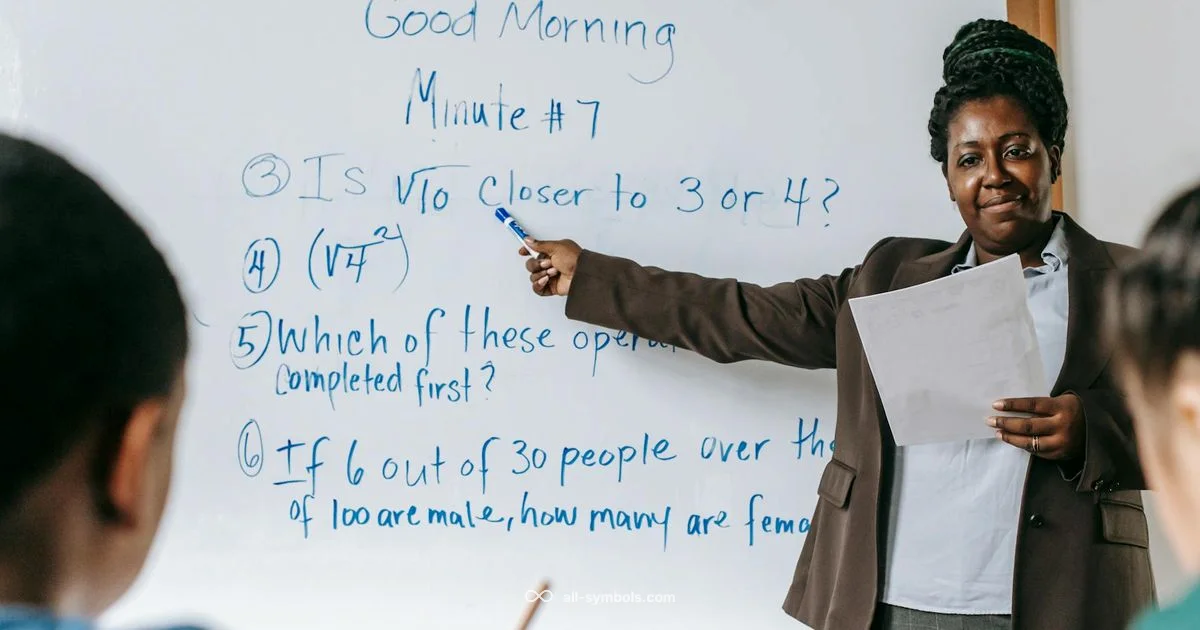 Good Morning
Minute #7
③ Is √10 closer to 3 or 4?
④ (√4²)
⑤ Which of these
completed first?
⑥ If 6 out of 30 people over the
of 100 are male, how many are
all-symbols.com